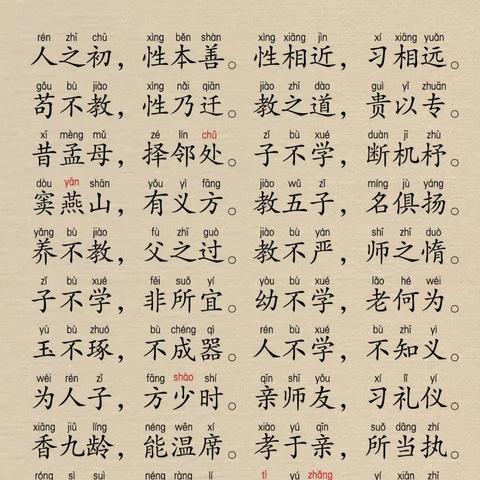 rén zhī chū xìng běn shàn xìng xiāng jìn xí xiāng yuǎn
人之初，性本善。性相近，习相远。
gǒu bù jiào xìng nǎi qiān jiào zhī dào guì yǐ zhuān
苟不教，性乃迁。教之道，贵以专。
xī mèng mǔ zé lín chǔ zǐ bù xué duàn jī zhù
昔孟母，择邻处。子不学，断机杼。
dòu yān shān yǒu yì fāng jiào wǔ zǐ míng jù yáng
窦燕山，有义方。教五子，名俱扬。
yǎng bù jiào fù zhī guò jiào bù yán shī zhī duò
养不教，父之过。教不严，师之惰。
zǐ bù xué fēi suǒ yí yòu bù xué lǎo hé wéi
子不学，非所宜。幼不学，老何为。
yù bù zhuó bù chéng qì rén bù xué bù zhī yì
玉不琢，不成器。人不学，不知义。
wéi rén zǐ fāng shào shí qīn shī yǒu xí lǐ yí
为人子，方少时。亲师友，习礼仪。
xiāng jiǔ líng néng wēn xí xiào yú qīn suǒ dāng zhí
香九龄，能温席。孝于亲，所当执。
róng sì suì néng ràng lí tì yú zhǎng yí xiān zhī